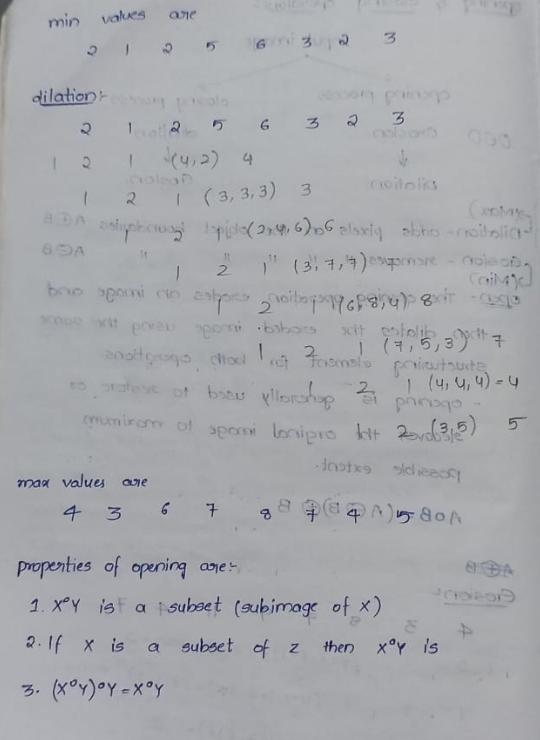 min values are
2 1 2 5 6 3 2 3
dilation:-
2 1 2 5 6 3 2 3
1 2 1 (4,2) 4
1 2 1 (3,3,3) 3
2 (2,4,6) 6
1 2 1 (3,7,7) 7
2 1 (6,8,4) 8
1 2 1 (7,5,3) 7
1 2 1 (4,4,4) = 4
2 (3,5) 5
max values are
4 3 6 7 8 7 4 5
properties of opening are:-
1. X°Y is a subset (subimage of X)
2. If X is a subset of z then X°Y is
3. (X°Y)°Y = X°Y